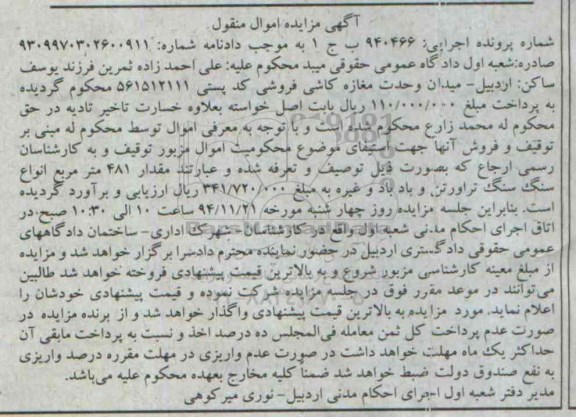 آگهی مزایده اموال منقول
شماره پرونده اجرایی: ۹۴۰۴۶۶ ب ج ۱ به موجب دادنامه شماره: ۹۳۰۹۹۷۰۳۰۲۶۰۰۹۱۱
صادره:شعبه اول دادگاه عمومی حقوقی میبد محکوم علیه: علی احمد زاده ثمرین فرزند یوسف
ساکن: اردبیل- میدان وحدت مغازه کاشی فروشی کد پستی ۵۶۱۵۱۲۱۱۱ محکوم گردیده
به پرداخت مبلغ ۱۱۰/۰۰۰/۰۰۰ ریال بابت اصل خواسته بعلاوه خسارت تاخیر تادیه در حق
محکوم له محمد زارع محکوم شده است و با توجه به معرفی اموال توسط محکوم له مبنی بر
توقیف و فروش آنها جهت استیفای موضوع محکومیت اموال مزبور توقیف و به کارشناسان
رسمی ارجاع که بصورت ذیل توصیف و تعرفه شده و عبارتند مقدار ۴۸۱ متر مربع انواع
سنگ سنگ تراورتن و باد باد و غیره به مبلغ ۳۴۱/۷۲۰/۰۰۰ ریال ارزیابی و برآورد گردیده
است. بنابراین جلسه مزایده روز چهار شنبه مورخه ۹۴/۱۱/۲۱ ساعت ۱۰ الی ۱۰:۳۰ صبح در
اتاق اجرای احکام مدنی شعبه اول واقع در کارشناسان- شهرک اداری- ساختمان دادگاههای
عمومی حقوقی دادگستری اردبیل در حضور نماینده محترم دادسرا برگزار خواهد شد و مزایده
از مبلغ معینه کارشناسی مزبور شروع و به بالاترین قیمت پیشنهادی فروخته خواهد شد طالبین
می‌توانند در موعد مقرر فوق در جلسه مزایده شرکت نموده و قیمت پیشنهادی خودشان را
اعلام نماید. مورد مزایده به بالاترین قیمت پیشنهادی واگذار خواهد شد و از برنده مزایده در
صورت عدم پرداخت کل ثمن معامله فی‌المجلس ده درصد اخذ و نسبت به پرداخت مابقی آن
حداکثر یک ماه مهلت خواهد داشت در صورت عدم واریزی در مهلت مقرره درصد واریزی
به نفع صندوق دولت ضبط خواهد شد ضمناً کلیه مخارج بعهده محکوم علیه می‌باشد.
مدیر دفتر شعبه اول اجرای احکام مدنی اردبیل- نوری میرکوهی